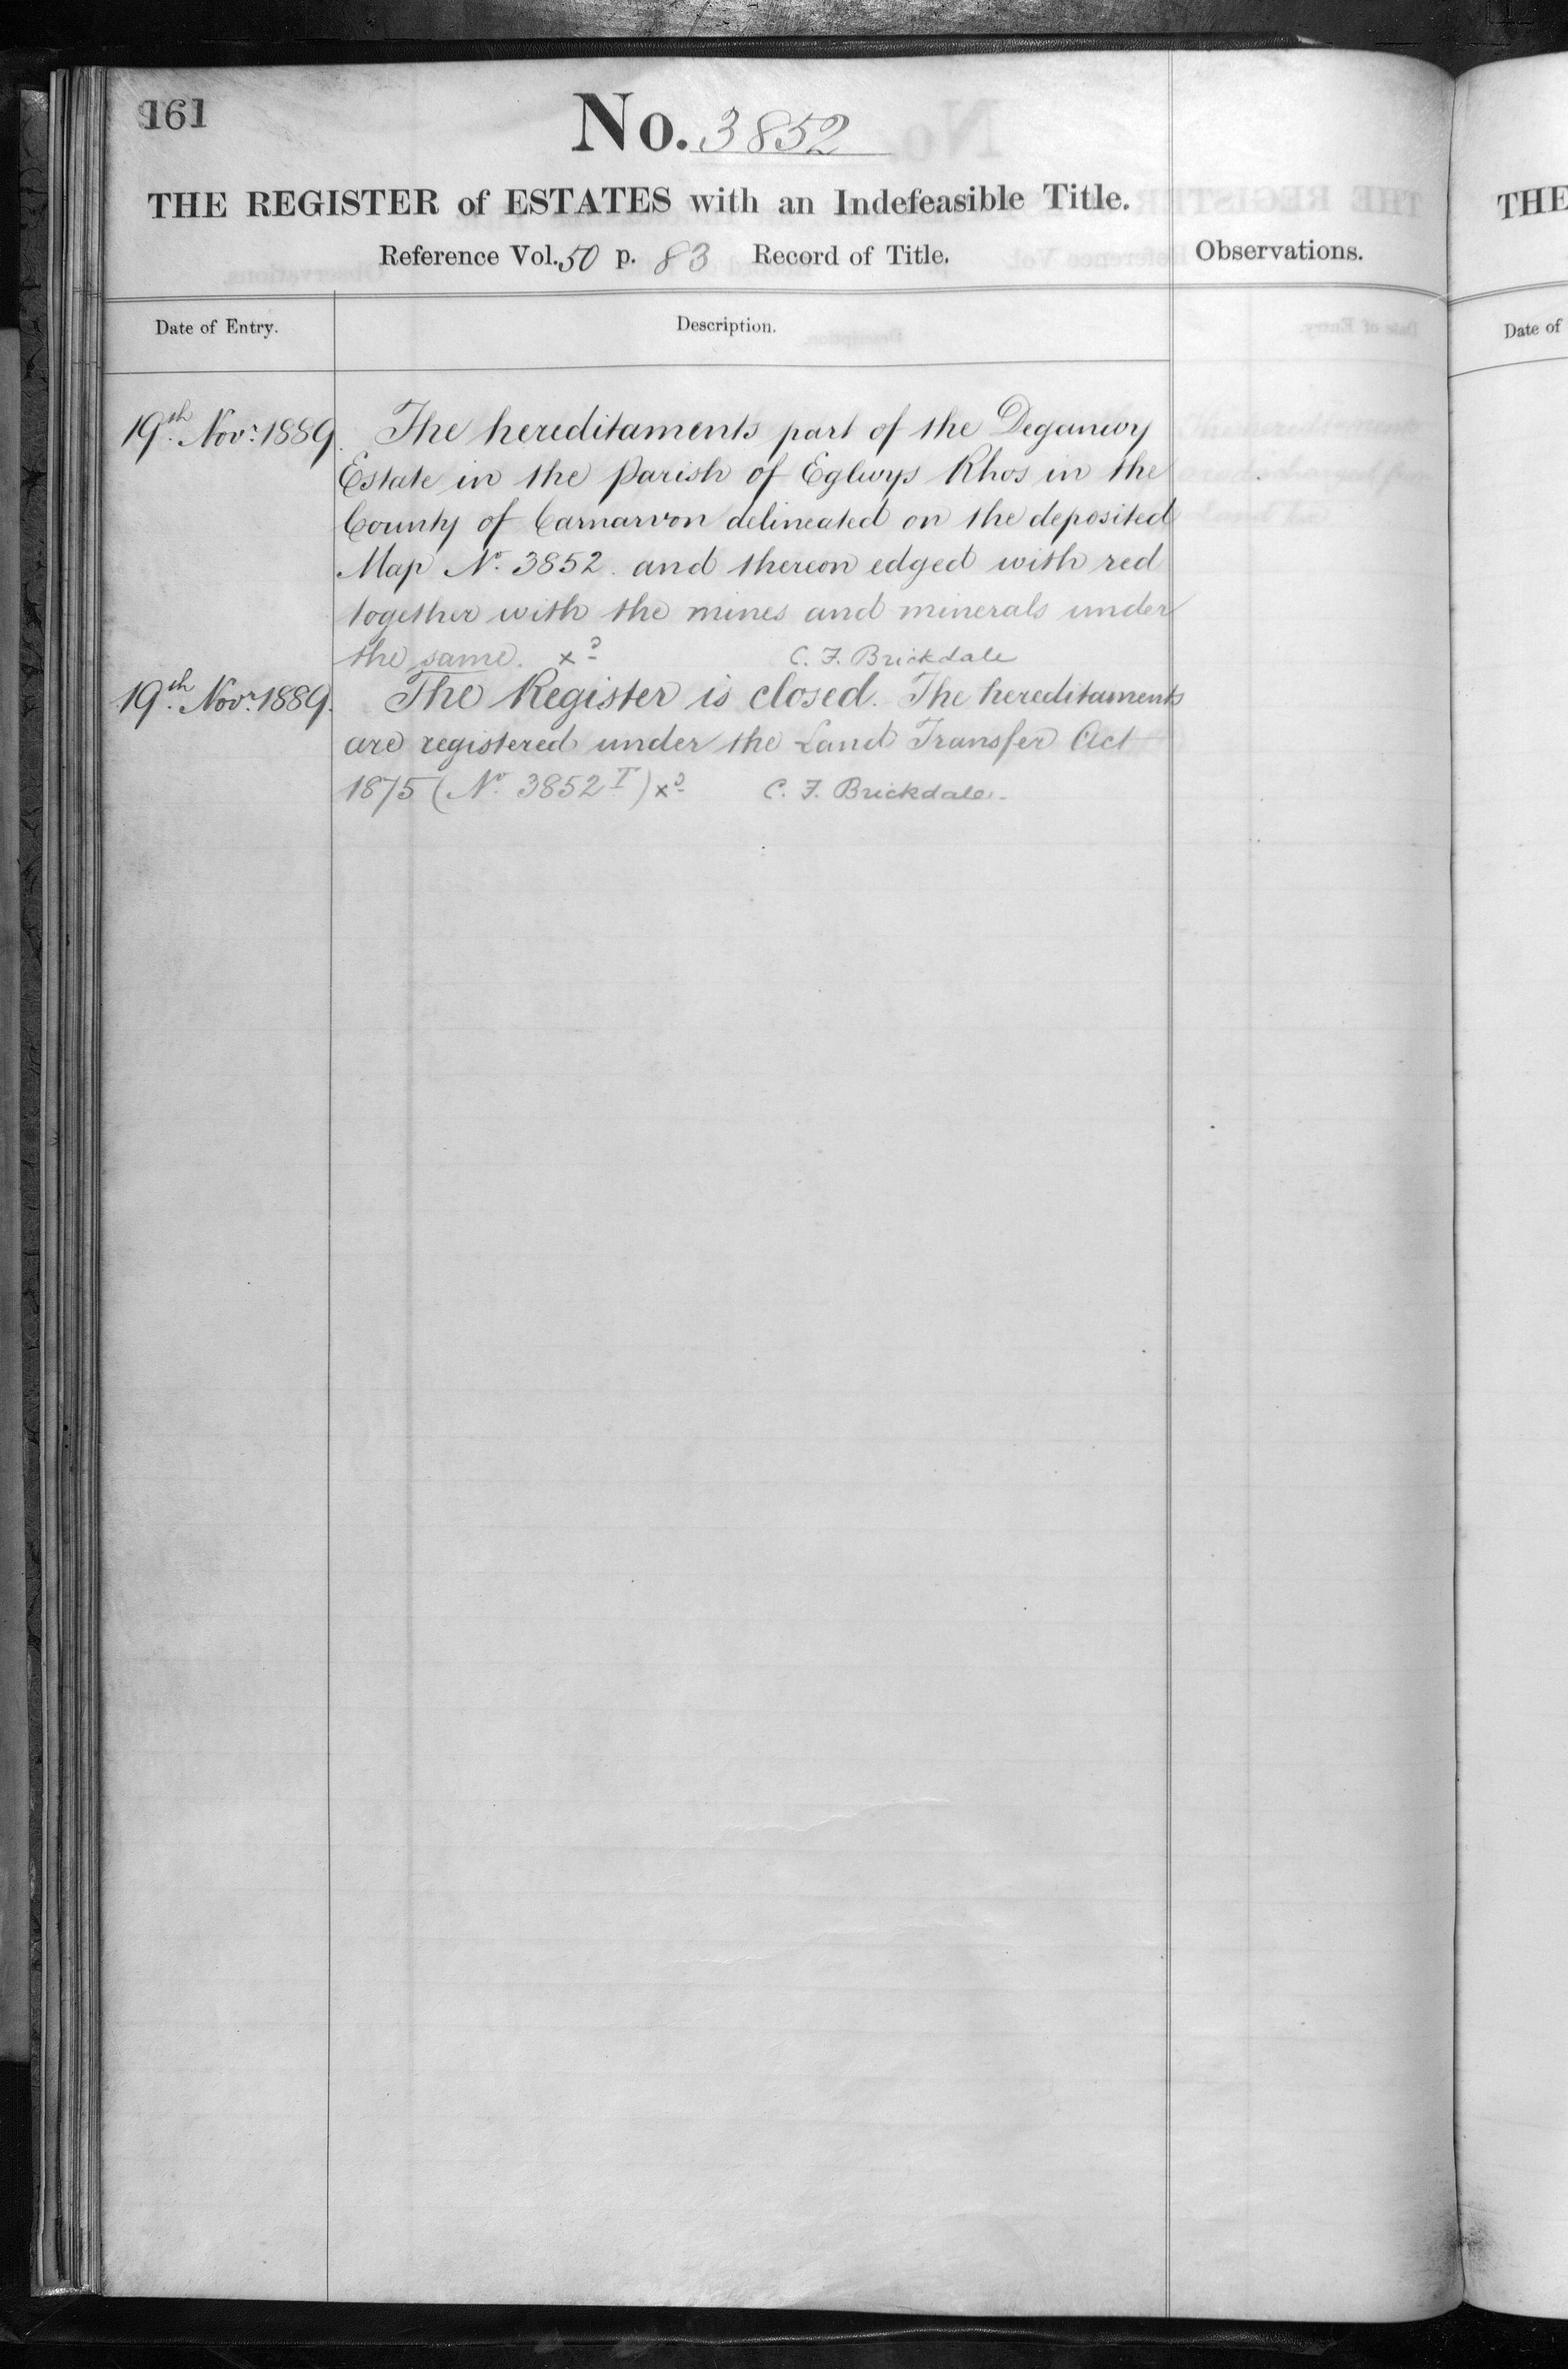 161
No. 3852
THE REGISTER of ESTATES with an Indefeasible Title.
Reference Vol. 50 p. 83 Record of Title.
Observations.
THE
Date of Entry.
Description.
Date of
19th Novr. 1889. The hereditaments part of the Deganwy
Estate in the Parish of Eglwys Rhos in the
County of Carnarvon delineated on the deposited
Map No. 3852. and thereon edged with red
together with the mines and minerals under
the same. C. F. Brickdale
19th Novr. 1889. The Register is closed. The hereditaments
are registered under the Land Transfer Act
1875 (No. 3852 T) C. F. Brickdale.